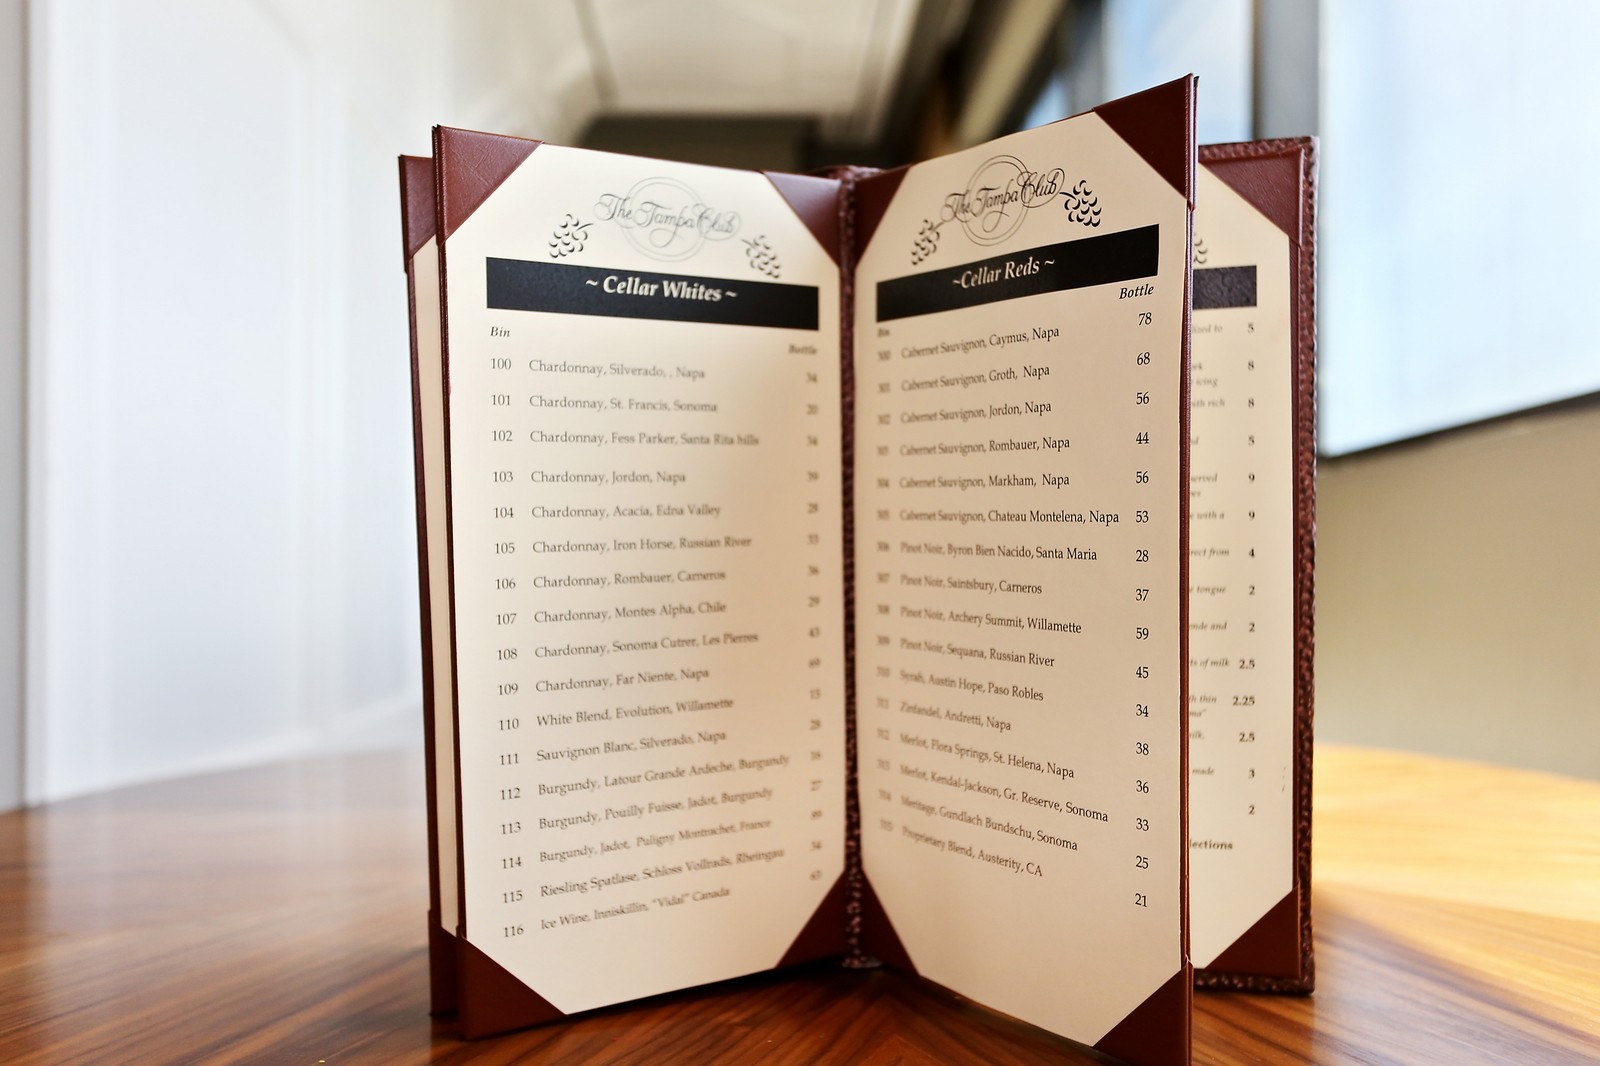 The Tampa Club
~ Cellar Whites ~
Bin
Bottle
100 Chardonnay, Silverado, , Napa 34
101 Chardonnay, St. Francis, Sonoma 20
102 Chardonnay, Fess Parker, Santa Rita hills 34
103 Chardonnay, Jordon, Napa 39
104 Chardonnay, Acacia, Edna Valley 28
105 Chardonnay, Iron Horse, Russian River 33
106 Chardonnay, Rombauer, Carneros 36
107 Chardonnay, Montes Alpha, Chile 29
108 Chardonnay, Sonoma Cutrer, Les Pierres 43
109 Chardonnay, Far Niente, Napa 69
110 White Blend, Evolution, Willamette 15
111 Sauvignon Blanc, Silverado, Napa 28
112 Burgundy, Latour Grande Ardeche, Burgundy 16
113 Burgundy, Pouilly Fuisse, Jadot, Burgundy 27
114 Burgundy, Jadot, Puligny Montrachet, France 89
115 Riesling Spatlase, Schloss Vollrads, Rheingau 34
116 Ice Wine, Inniskillin, "Vidal" Canada 63
The Tampa Club
~Cellar Reds ~
Bin
Bottle
300 Cabernet Sauvignon, Caymus, Napa 78
301 Cabernet Sauvignon, Groth, Napa 68
302 Cabernet Sauvignon, Jordon, Napa 56
303 Cabernet Sauvignon, Rombauer, Napa 44
304 Cabernet Sauvignon, Markham, Napa 56
305 Cabernet Sauvignon, Chateau Montelena, Napa 53
306 Pinot Noir, Byron Bien Nacido, Santa Maria 28
307 Pinot Noir, Saintsbury, Carneros 37
308 Pinot Noir, Archery Summit, Willamette 59
309 Pinot Noir, Sequana, Russian River 45
310 Syrah, Austin Hope, Paso Robles 34
311 Zinfandel, Andretti, Napa 38
312 Merlot, Flora Springs, St. Helena, Napa 36
313 Merlot, Kendal-Jackson, Gr. Reserve, Sonoma 33
314 Meritage, Gundlach Bundschu, Sonoma 25
315 Proprietary Blend, Austerity, CA 21
to 5
8
icing
with rich 8
5
served 9
with a 9
from 4
tongue 2
and 2
of milk 2.5
thin 2.25
milk, 2.5
made 3
2